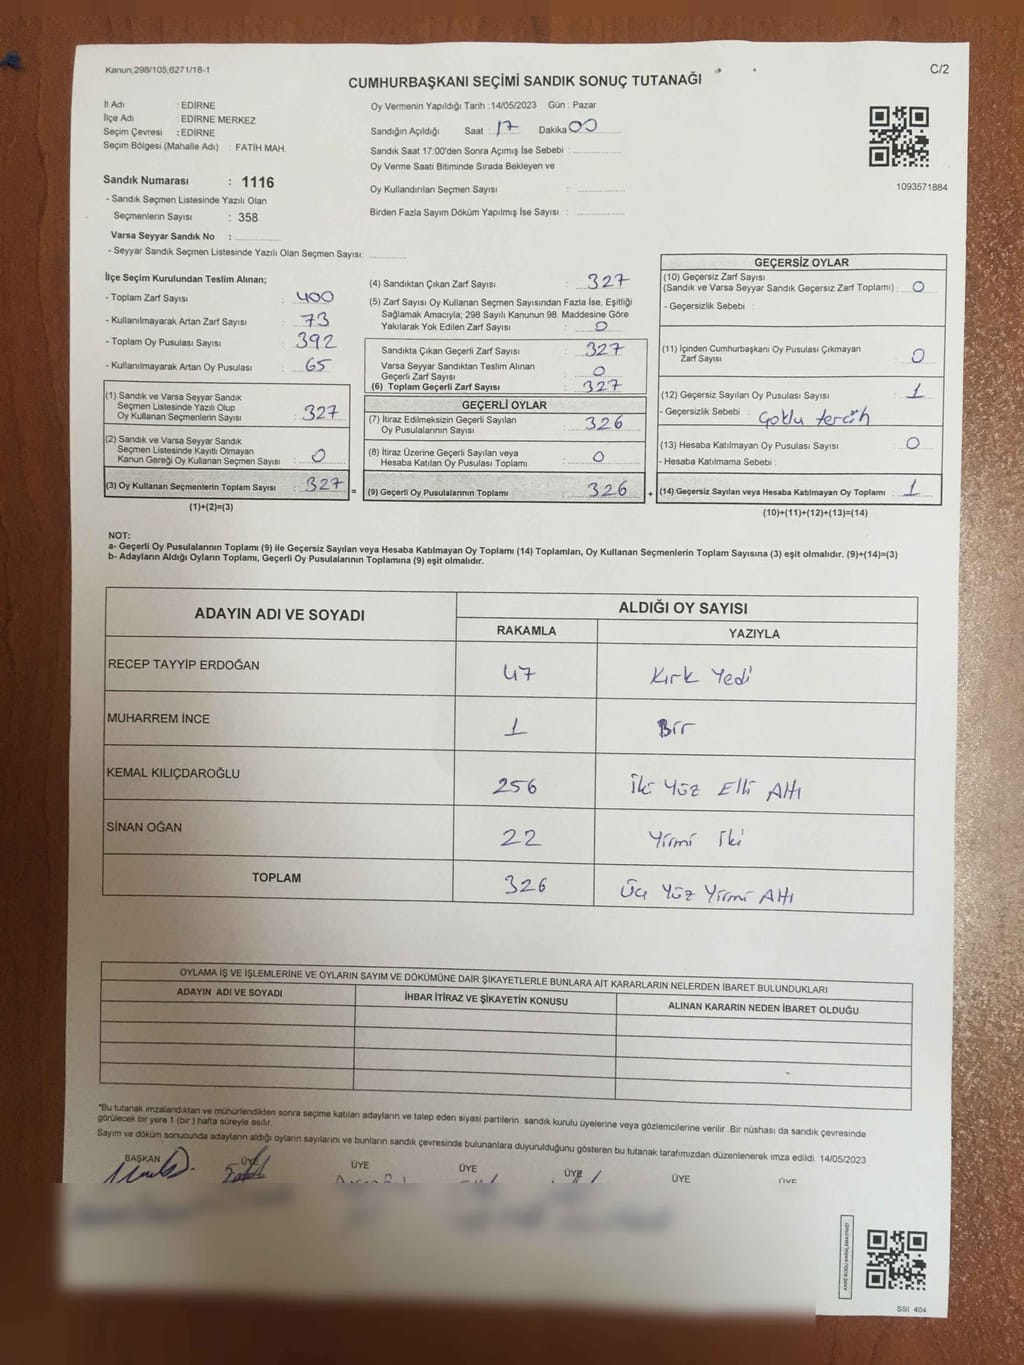 Kanun;298/105,6271/18-1
C/2
CUMHURBAŞKANI SEÇİMİ SANDIK SONUÇ TUTANAĞI
İl Adı : EDİRNE
İlçe Adı : EDİRNE MERKEZ
Seçim Çevresi : EDİRNE
Seçim Bölgesi (Mahalle Adı) : FATİH MAH.
Sandık Numarası : 1116
- Sandık Seçmen Listesinde Yazılı Olan
Seçmenlerin Sayısı : 358
Varsa Seyyar Sandık No :
- Seyyar Sandık Seçmen Listesinde Yazılı Olan Seçmen Sayısı:
Oy Vermenin Yapıldığı Tarih :14/05/2023 Gün : Pazar
Sandığın Açıldığı Saat : 17 Dakika 00
Sandık Saat 17:00'den Sonra Açımış İse Sebebi :
Oy Verme Saati Bitiminde Sırada Bekleyen ve
Oy Kullandırılan Seçmen Sayısı :
Birden Fazla Sayım Döküm Yapılmış İse Sayısı :
1093571884
İlçe Seçim Kurulundan Teslim Alınan;
- Toplam Zarf Sayısı : 400
- Kullanılmayarak Artan Zarf Sayısı : 73
- Toplam Oy Pusulası Sayısı : 392
- Kullanılmayarak Artan Oy Pusulası : 65
(1) Sandık ve Varsa Seyyar Sandık
Seçmen Listesinde Yazılı Olup
Oy Kullanan Seçmenlerin Sayısı : 327
(2) Sandık ve Varsa Seyyar Sandık
Seçmen Listesinde Kayıtlı Olmayan
Kanun Gereği Oy Kullanan Seçmen Sayısı : 0
(3) Oy Kullanan Seçmenlerin Toplam Sayısı : 327 =
(1)+(2)=(3)
(4) Sandıktan Çıkan Zarf Sayısı : 327
(5) Zarf Sayısı Oy Kullanan Seçmen Sayısından Fazla İse, Eşitliği
Sağlamak Amacıyla; 298 Sayılı Kanunun 98. Maddesine Göre
Yakılarak Yok Edilen Zarf Sayısı : 0
Sandıkta Çıkan Geçerli Zarf Sayısı : 327
Varsa Seyyar Sandıktan Teslim Alınan
Geçerli Zarf Sayısı : 0
(6) Toplam Geçerli Zarf Sayısı : 327
GEÇERLİ OYLAR
(7) İtiraz Edilmeksizin Geçerli Sayılan
Oy Pusulalarının Sayısı : 326
(8) İtiraz Üzerine Geçerli Sayılan veya
Hesaba Katılan Oy Pusulası Toplamı : 0
(9) Geçerli Oy Pusulalarının Toplamı : 326 +
GEÇERSİZ OYLAR
(10) Geçersiz Zarf Sayısı
(Sandık ve Varsa Seyyar Sandık Geçersiz Zarf Toplamı) : 0
- Geçersizlik Sebebi :
(11) İçinden Cumhurbaşkanı Oy Pusulası Çıkmayan
Zarf Sayısı : 0
(12) Geçersiz Sayılan Oy Pusulası Sayısı : 1
- Geçersizlik Sebebi : Çoklu tercih
(13) Hesaba Katılmayan Oy Pusulası Sayısı : 0
- Hesaba Katılmama Sebebi :
(14) Geçersiz Sayılan veya Hesaba Katılmayan Oy Toplamı : 1
(10)+(11)+(12)+(13)=(14)
NOT:
a- Geçerli Oy Pusulalarının Toplamı (9) ile Geçersiz Sayılan veya Hesaba Katılmayan Oy Toplamı (14) Toplamları, Oy Kullanan Seçmenlerin Toplam Sayısına (3) eşit olmalıdır. (9)+(14)=(3)
b- Adayların Aldığı Oyların Toplamı, Geçerli Oy Pusulalarının Toplamına (9) eşit olmalıdır.
ADAYIN ADI VE SOYADI ALDIĞI OY SAYISI
RAKAMLA YAZIYLA
RECEP TAYYİP ERDOĞAN 47 Kırk Yedi
MUHARREM İNCE 1 Bir
KEMAL KILIÇDAROĞLU 256 İki Yüz Elli Altı
SİNAN OĞAN 22 Yirmi İki
TOPLAM 326 Üç Yüz Yirmi Altı
OYLAMA İŞ VE İŞLEMLERİNE VE OYLARIN SAYIM VE DÖKÜMÜNE DAİR ŞİKAYETLERLE BUNLARA AİT KARARLARIN NELERDEN İBARET BULUNDUKLARI
ADAYIN ADI VE SOYADI İHBAR İTİRAZ VE ŞİKAYETİN KONUSU ALINAN KARARIN NEDEN İBARET OLDUĞU
*Bu tutanak imzalandıktan ve mühürlendikten sonra seçime katılan adayların ve talep eden siyasi partilerin sandık kurulu üyelerine veya gözlemcilerine verilir. Bir nüshası da sandık çevresinde
görülecek bir yere 1 (bir) hafta süreyle asılır.
Sayım ve döküm sonucunda adayların aldığı oyların sayılarını ve bunların sandık çevresinde bulunanlara duyurulduğunu gösteren bu tutanak tarafımızdan düzenlenerek imza edildi. 14/05/2023
BAŞKAN ÜYE ÜYE ÜYE ÜYE ÜYE ÜYE
SSI: 404